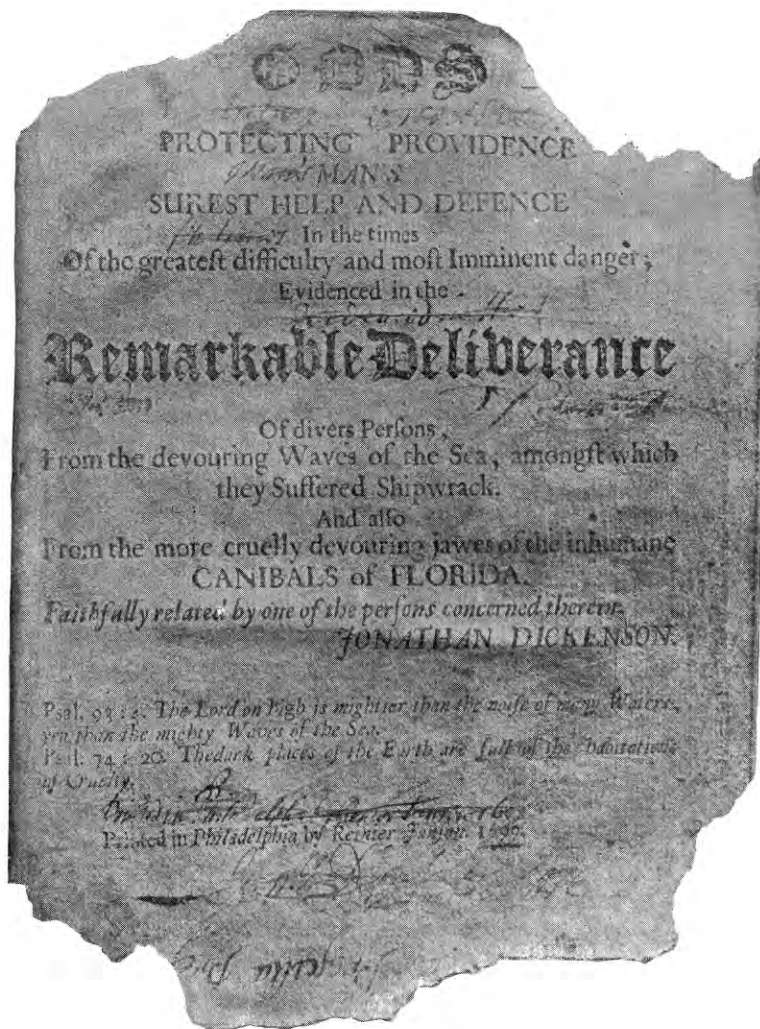 GODS
PROTECTING PROVIDENCE
MAN'S
SUREST HELP AND DEFENCE
In the times
Of the greateſt difficulty and moſt Imminent danger;
Evidenced in the
Remarkable Deliverance
Of divers Perſons,
From the devouring Waves of the Sea, amongſt which
they Suffered Shipwrack.
And alſo
From the more cruelly devouring jawes of the inhumane
CANIBALS of FLORIDA.
Faithfully related by one of the perſons concerned therein.
JONATHAN DICKENSON.
Pſal. 93: 4. The Lord on high is mightier than the noiſe of many Waters,
yea than the mighty Waves of the Sea.
Pſal. 74: 20. The dark places of the Earth are full of the habitations
of Cruelty.
Printed in Philadelphia by Reinier Janſen. 1699.